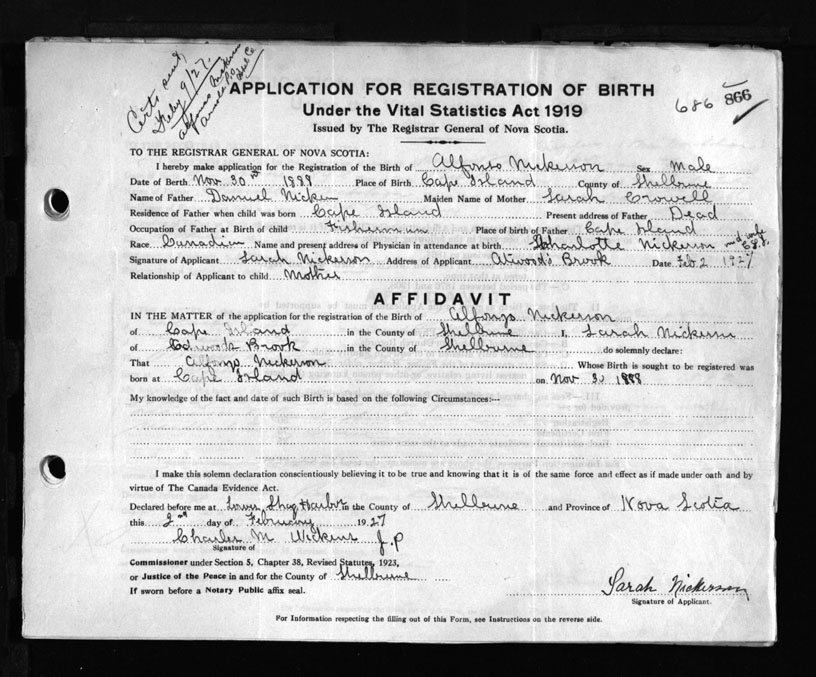 Certs sent
Feby 9/27.
Alfonso Nickerson
APPLICATION FOR REGISTRATION OF BIRTH
686 866
Under the Vital Statistics Act 1919
Issued by The Registrar General of Nova Scotia.
TO THE REGISTRAR GENERAL OF NOVA SCOTIA:
I hereby make application for the Registration of the Birth of Alfonso Nickerson Sex Male
Date of Birth Nov. 30th 1888 Place of Birth Cape Island County of Shelburne
Name of Father Daniel Nicker Maiden Name of Mother Sarah Crowell
Residence of Father when child was born Cape Island Present address of Father Dead
Occupation of Father at Birth of child Fisherman Place of birth of Father Cape Island
Race Canadian Name and present address of Physician in attendance at birth Charlotte Nickerson midwife
Signature of Applicant Sarah Nickerson Address of Applicant Atwood's Brook Date Feb 2 1927
Relationship of Applicant to child Mother
AFFIDAVIT
IN THE MATTER of the application for the registration of the Birth of Alfonso Nickerson
of Cape Island in the County of Shelburne I, Sarah Nickerson
of Brook in the County of Shelburne do solemnly declare:
That Alfonso Nickerson Whose Birth is sought to be registered was
born at Cape Island on Nov 30 1888
My knowledge of the fact and date of such Birth is based on the following Circumstances:—
I make this solemn declaration conscientiously believing it to be true and knowing that it is of the same force and effect as if made under oath and by
virtue of The Canada Evidence Act.
Declared before me at Lower Shag Harbor in the County of Shelburne and Province of Nova Scotia
this 2nd day of February 1927
Charles M Nickerson J.P
Signature of
Commissioner under Section 5, Chapter 38, Revised Statutes, 1923,
or Justice of the Peace in and for the County of Shelburne
If sworn before a Notary Public affix seal.
Sarah Nickerson
Signature of Applicant.
For Information respecting the filling out of this Form, see Instructions on the reverse side.